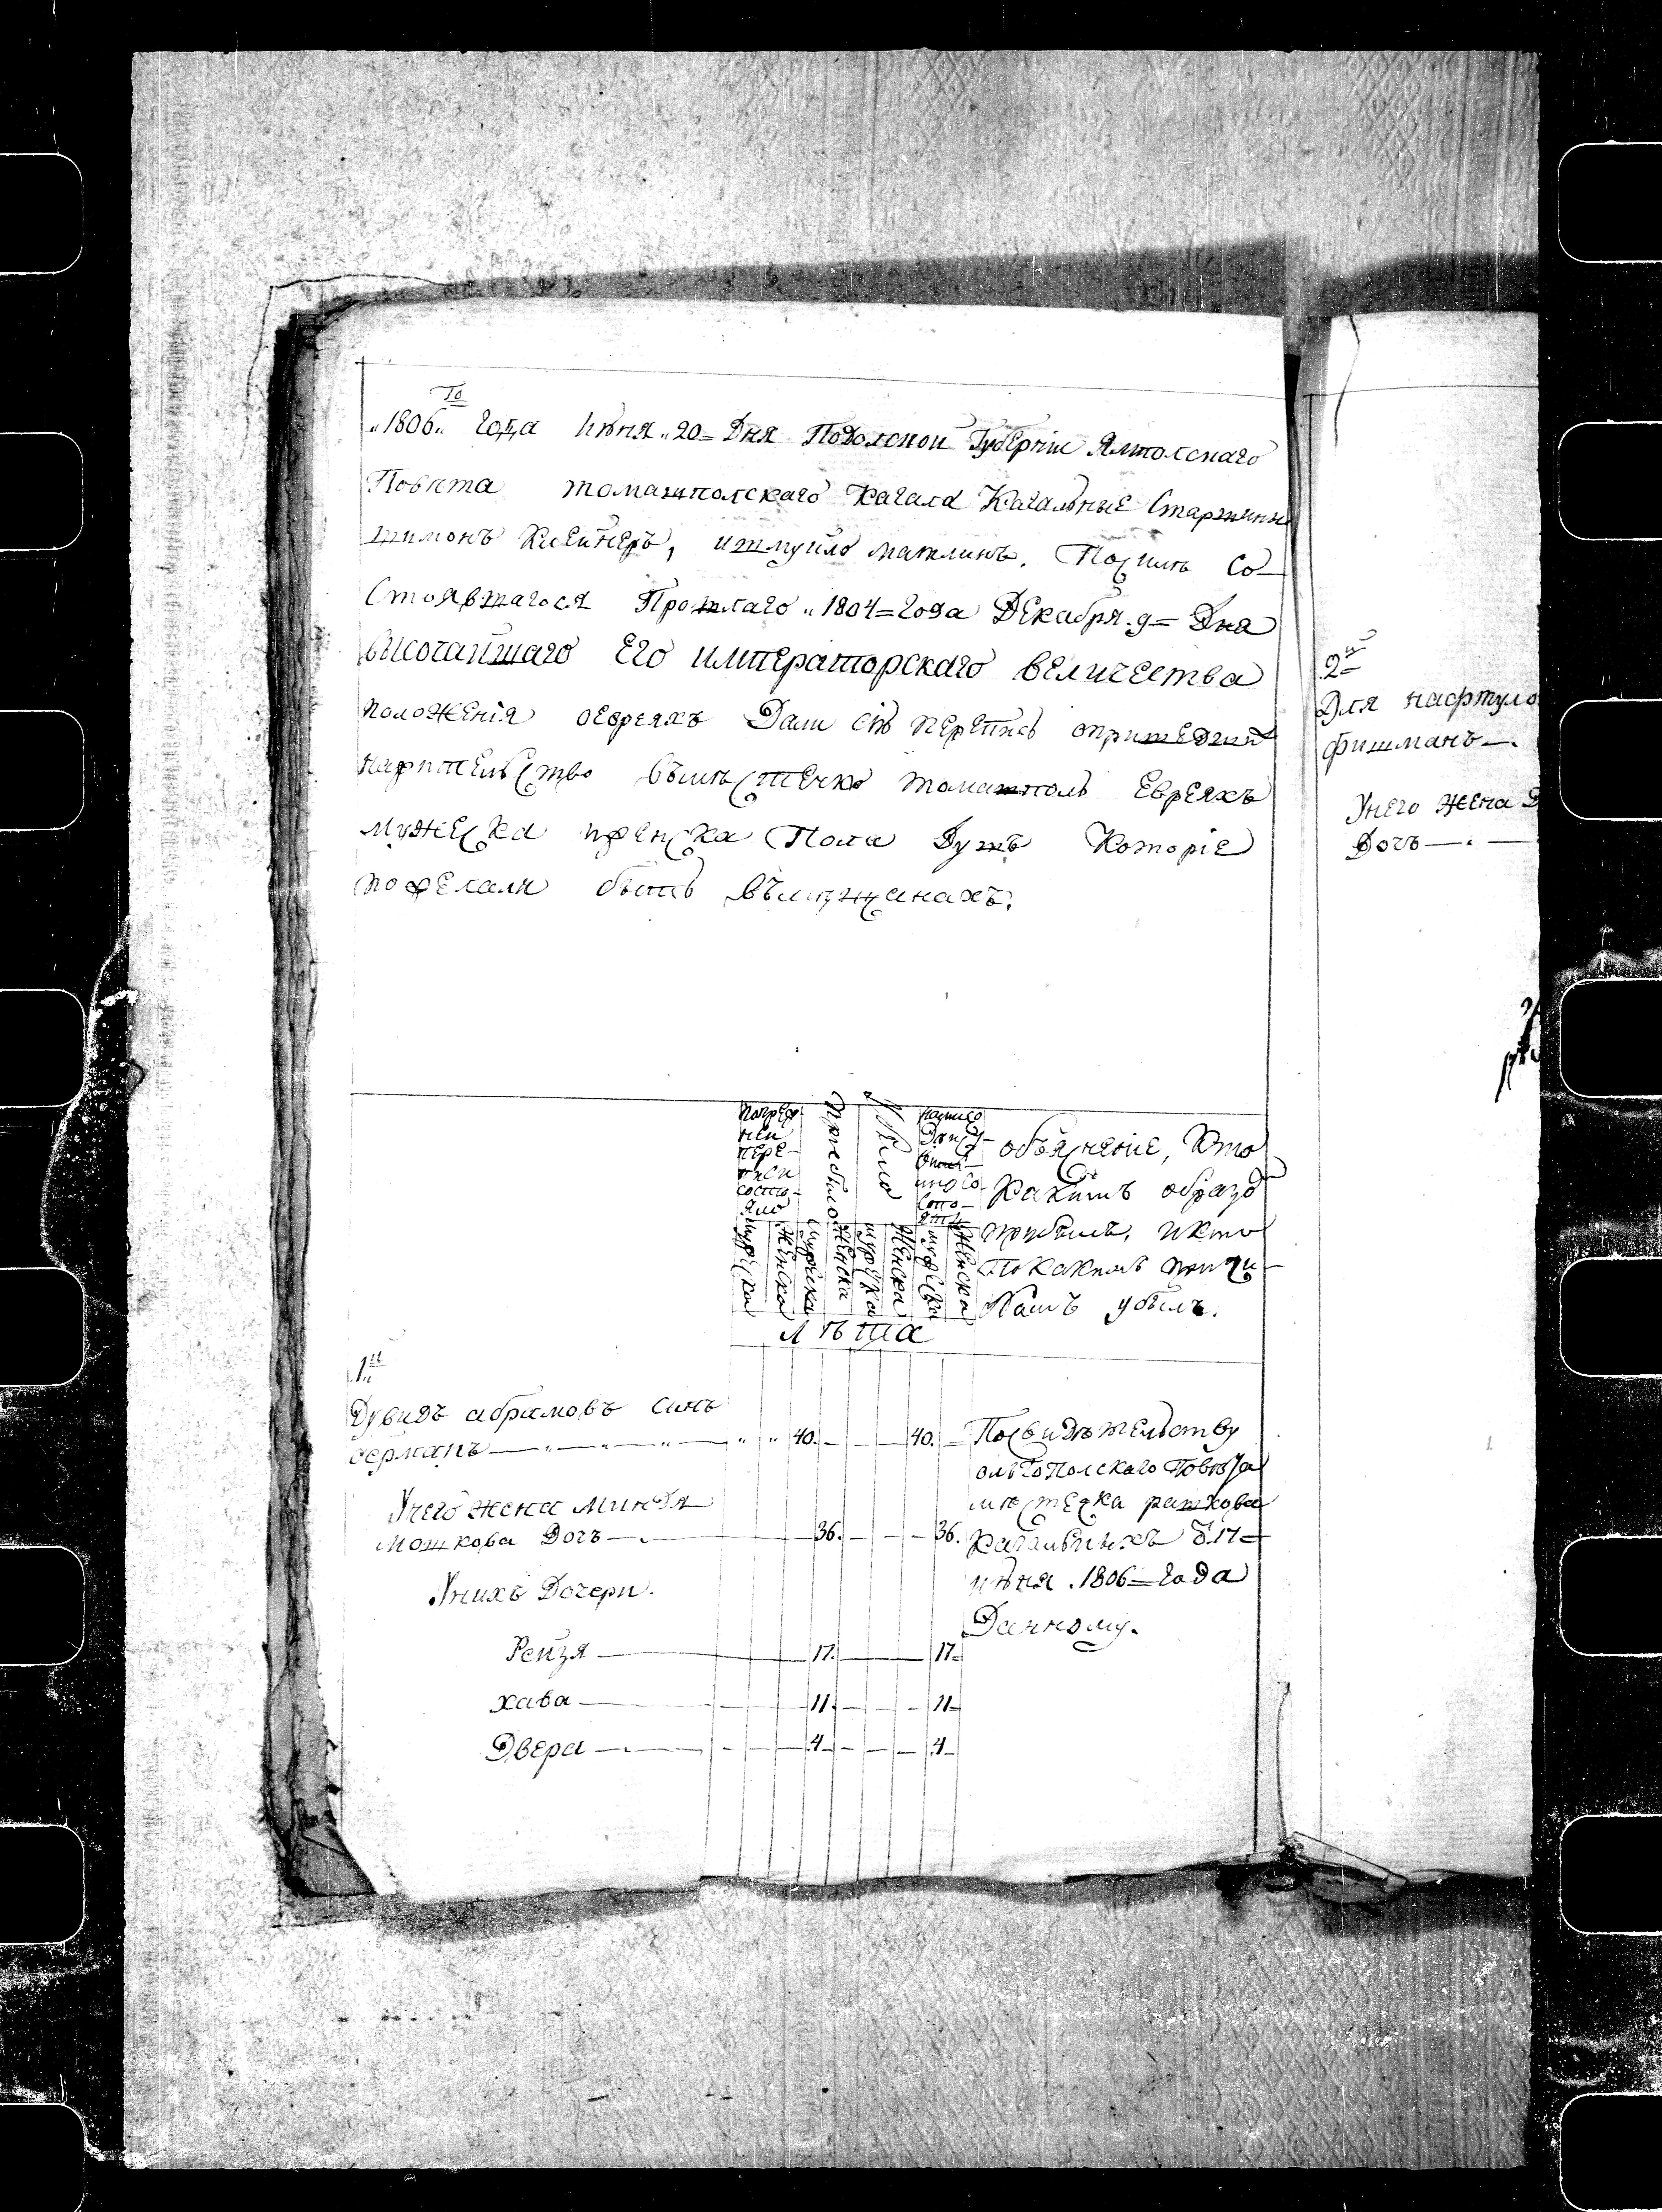 „1806„ го года Июня „20= Дня Подолской Губернiи Ямполскаго
Повѣта томашполскаго Кагала Кагальные Старшины
шимонъ Клейнеръ, ишмуйло маклинъ. По силѣ Со-
Стоявшагося Прошлаго „1804=года Декабря 9= Дня
высочайшаго Его императорскаго величества
положенiя оевреяхъ Дали сiю перепись опришедшихъ
нажительство въмѣстечко томашполь Евреяхъ
мужеска иженска Пола Душъ Которiе
пожелали быть вмѣщанахъ.
Попред
ней
пере-
писи
состо-
яло
Прибыло
Убыло
Объясненiе, Кто
Какимъ образо
прибылъ, икто
Покакимъ причи-
намъ убылъ.
мужеска
женска
мужеска
женска
мужеска
женска
мужеска
женска
лѣта
1й
Дувидъ абрамовъ синъ
германъ — „ — „ — „ — „ „ 40. — — 40. — Посвидѣтельству
ольгополскаго Повѣта
мѣстечка рашкова
Унего жена Миндля
мошкова Дочъ — 36. — — — 36. Кагальныхъ 17=
Унихъ Дочери.
июня .1806=года
Данному.
Рейзя — 17. — 17=
хава — 11. — — — 11=
Двера — 4 — — — 4
2й
Для нафтуло
фишманъ —.
Унего жена Д
Дочъ — . —